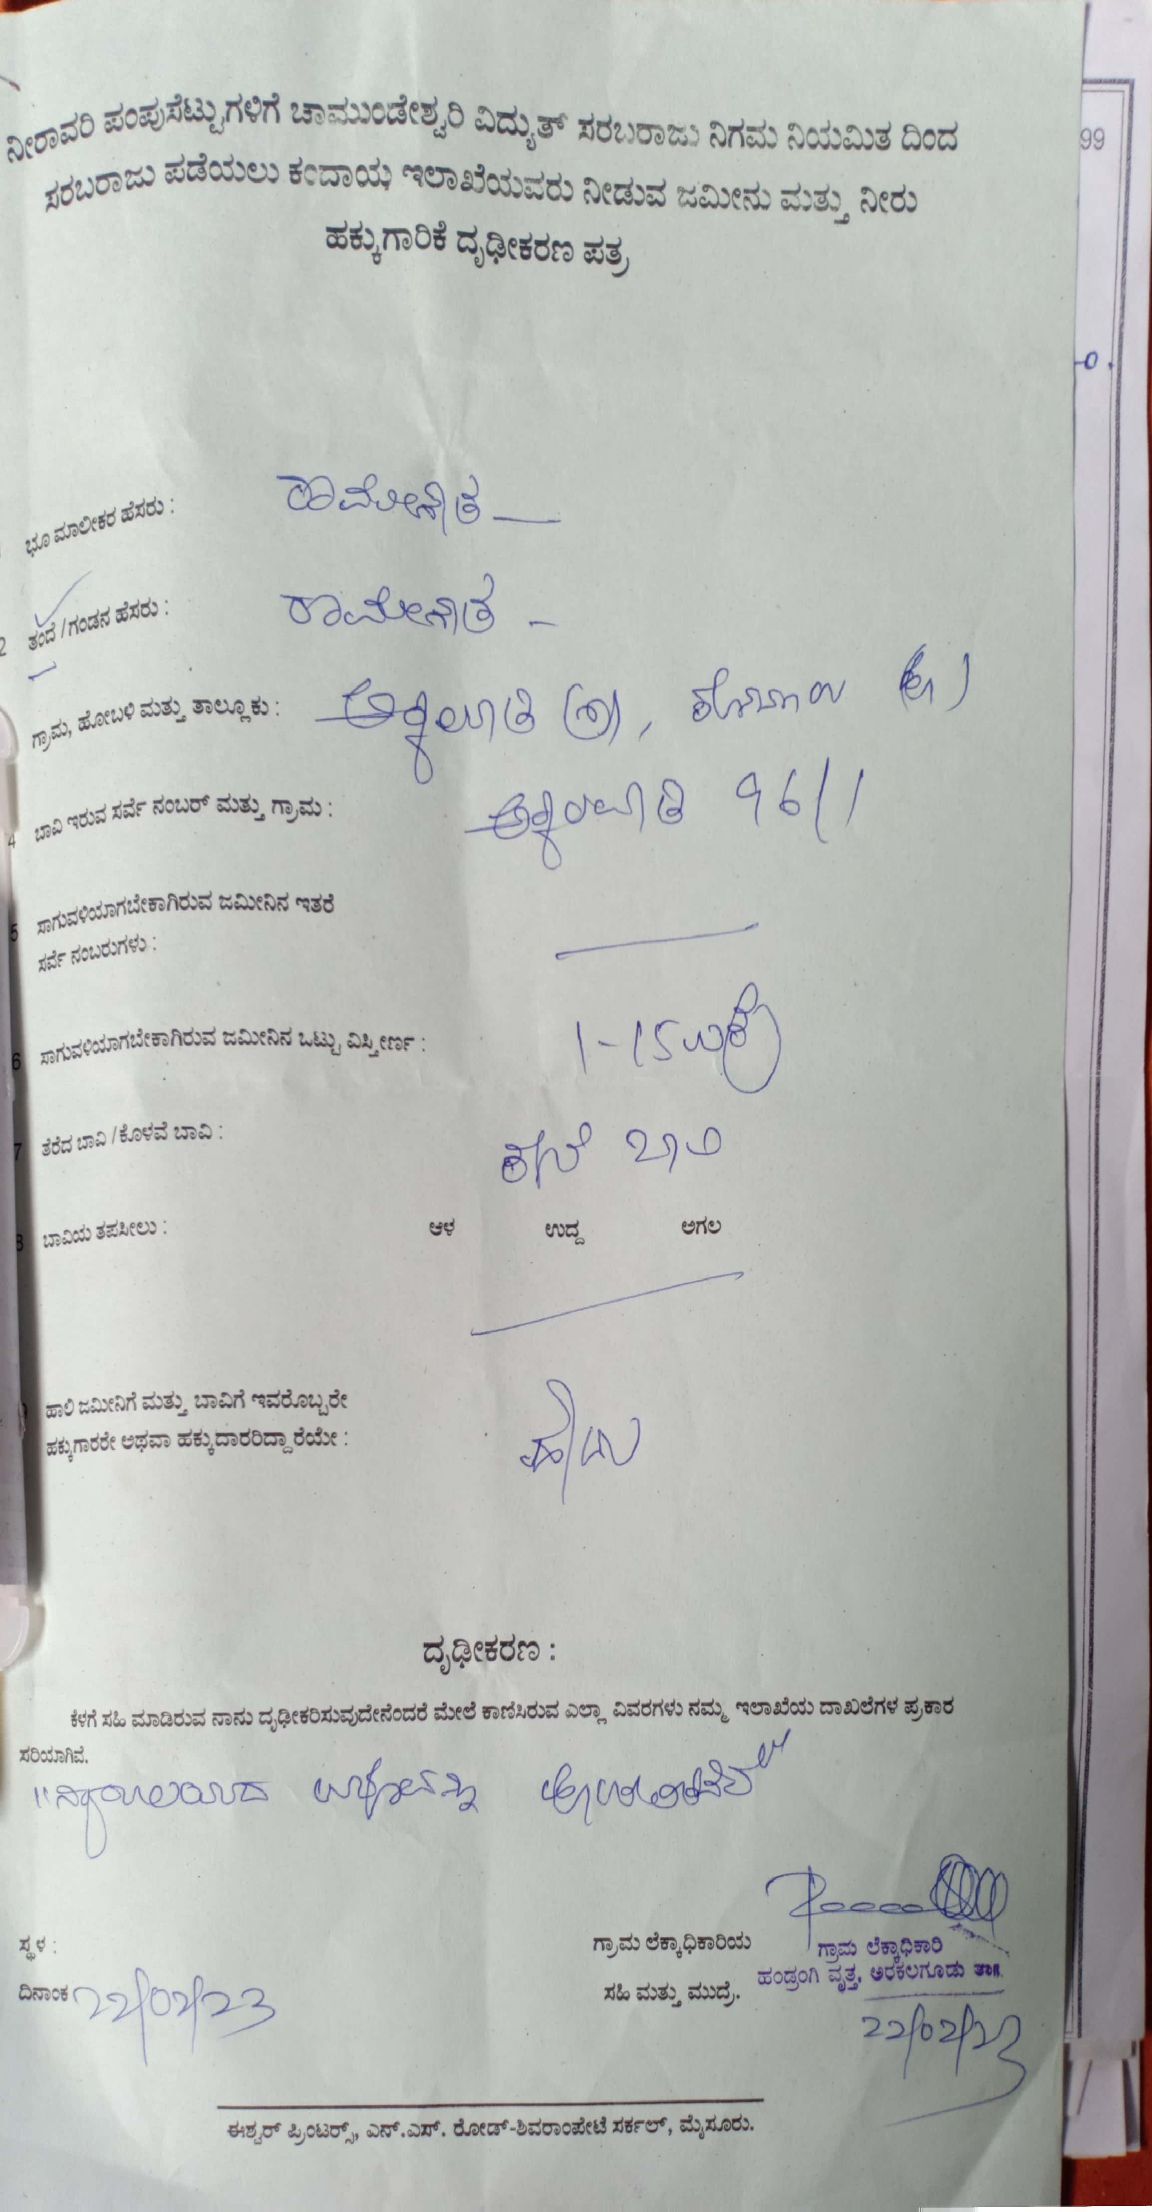 99
ನೀರಾವರಿ ಪಂಪುಸೆಟ್ಟುಗಳಿಗೆ ಚಾಮುಂಡೇಶ್ವರಿ ವಿದ್ಯುತ್ ಸರಬರಾಜು ನಿಗಮ ನಿಯಮಿತ ದಿಂದ
ಸರಬರಾಜು ಪಡೆಯಲು ಕಂದಾಯ ಇಲಾಖೆಯವರು ನೀಡುವ ಜಮೀನು ಮತ್ತು ನೀರು
ಹಕ್ಕುಗಾರಿಕೆ ದೃಢೀಕರಣ ಪತ್ರ
ಭೂ ಮಾಲೀಕರ ಹೆಸರು :
2 ತಂದೆ / ಗಂಡನ ಹೆಸರು :
ಗ್ರಾಮ, ಹೋಬಳಿ ಮತ್ತು ತಾಲ್ಲೂಕು :
4 ಬಾವಿ ಇರುವ ಸರ್ವೆ ನಂಬರ್ ಮತ್ತು ಗ್ರಾಮ : 96/1
5 ಸಾಗುವಳಿಯಾಗಬೇಕಾಗಿರುವ ಜಮೀನಿನ ಇತರೆ
ಸರ್ವೆ ನಂಬರುಗಳು :
6 ಸಾಗುವಳಿಯಾಗಬೇಕಾಗಿರುವ ಜಮೀನಿನ ಒಟ್ಟು ವಿಸ್ತೀರ್ಣ : 1-15 ಎಕ್ರೆ
7 ತೆರೆದ ಬಾವಿ / ಕೊಳವೆ ಬಾವಿ :
8 ಬಾವಿಯ ತಪಸೀಲು : ಆಳ ಉದ್ದ ಅಗಲ
ಹಾಲಿ ಜಮೀನಿಗೆ ಮತ್ತು ಬಾವಿಗೆ ಇವರೊಬ್ಬರೇ
ಹಕ್ಕುಗಾರರೇ ಅಥವಾ ಹಕ್ಕುದಾರರಿದ್ದಾರೆಯೇ : ಹೌದು
ದೃಢೀಕರಣ :
ಕೆಳಗೆ ಸಹಿ ಮಾಡಿರುವ ನಾನು ದೃಢೀಕರಿಸುವುದೇನೆಂದರೆ ಮೇಲೆ ಕಾಣಿಸಿರುವ ಎಲ್ಲಾ ವಿವರಗಳು ನಮ್ಮ ಇಲಾಖೆಯ ದಾಖಲೆಗಳ ಪ್ರಕಾರ
ಸರಿಯಾಗಿವೆ.
ಸ್ಥಳ :
ಗ್ರಾಮ ಲೆಕ್ಕಾಧಿಕಾರಿಯ
ಗ್ರಾಮ ಲೆಕ್ಕಾಧಿಕಾರಿ
ಹಂಡ್ರಂಗಿ ವೃತ್ತ, ಅರಕಲಗೂಡು ತಾ॥
ದಿನಾಂಕ 22/02/23
ಸಹಿ ಮತ್ತು ಮುದ್ರೆ.
22/02/23
ಈಶ್ವರ್ ಪ್ರಿಂಟರ್ಸ್, ಎನ್.ಎಸ್. ರೋಡ್-ಶಿವರಾಂಪೇಟೆ ಸರ್ಕಲ್, ಮೈಸೂರು.